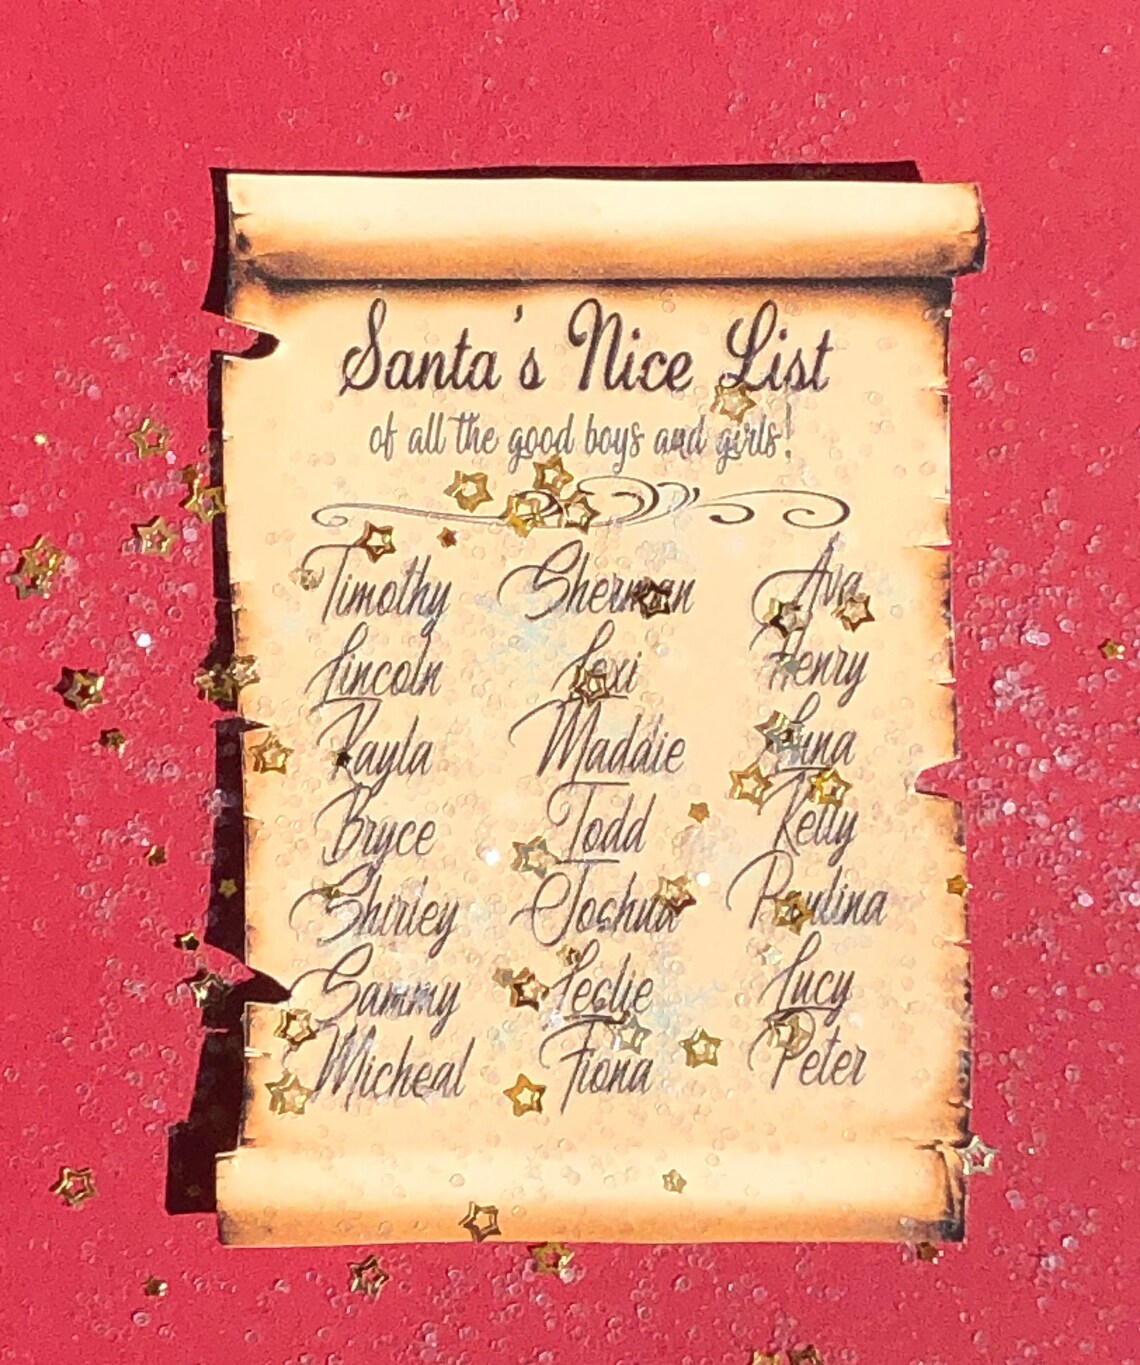 Santa's Nice List
of all the good boys and girls!
Timothy Sherman Ava
Lincoln Lexi Henry
Kayla Maddie Luna
Bryce Todd Kelly
Shirley Joshua Paulina
Sammy Leslie Lucy
Micheal Fiona Peter